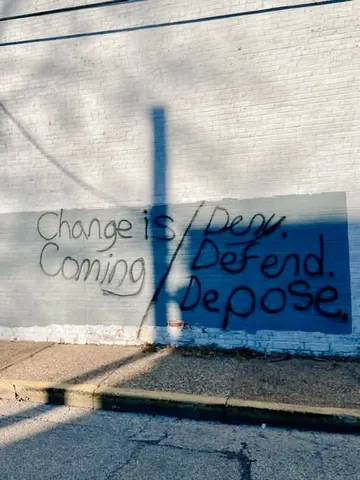 Change is / Deny.
Coming / Defend.
Depose.